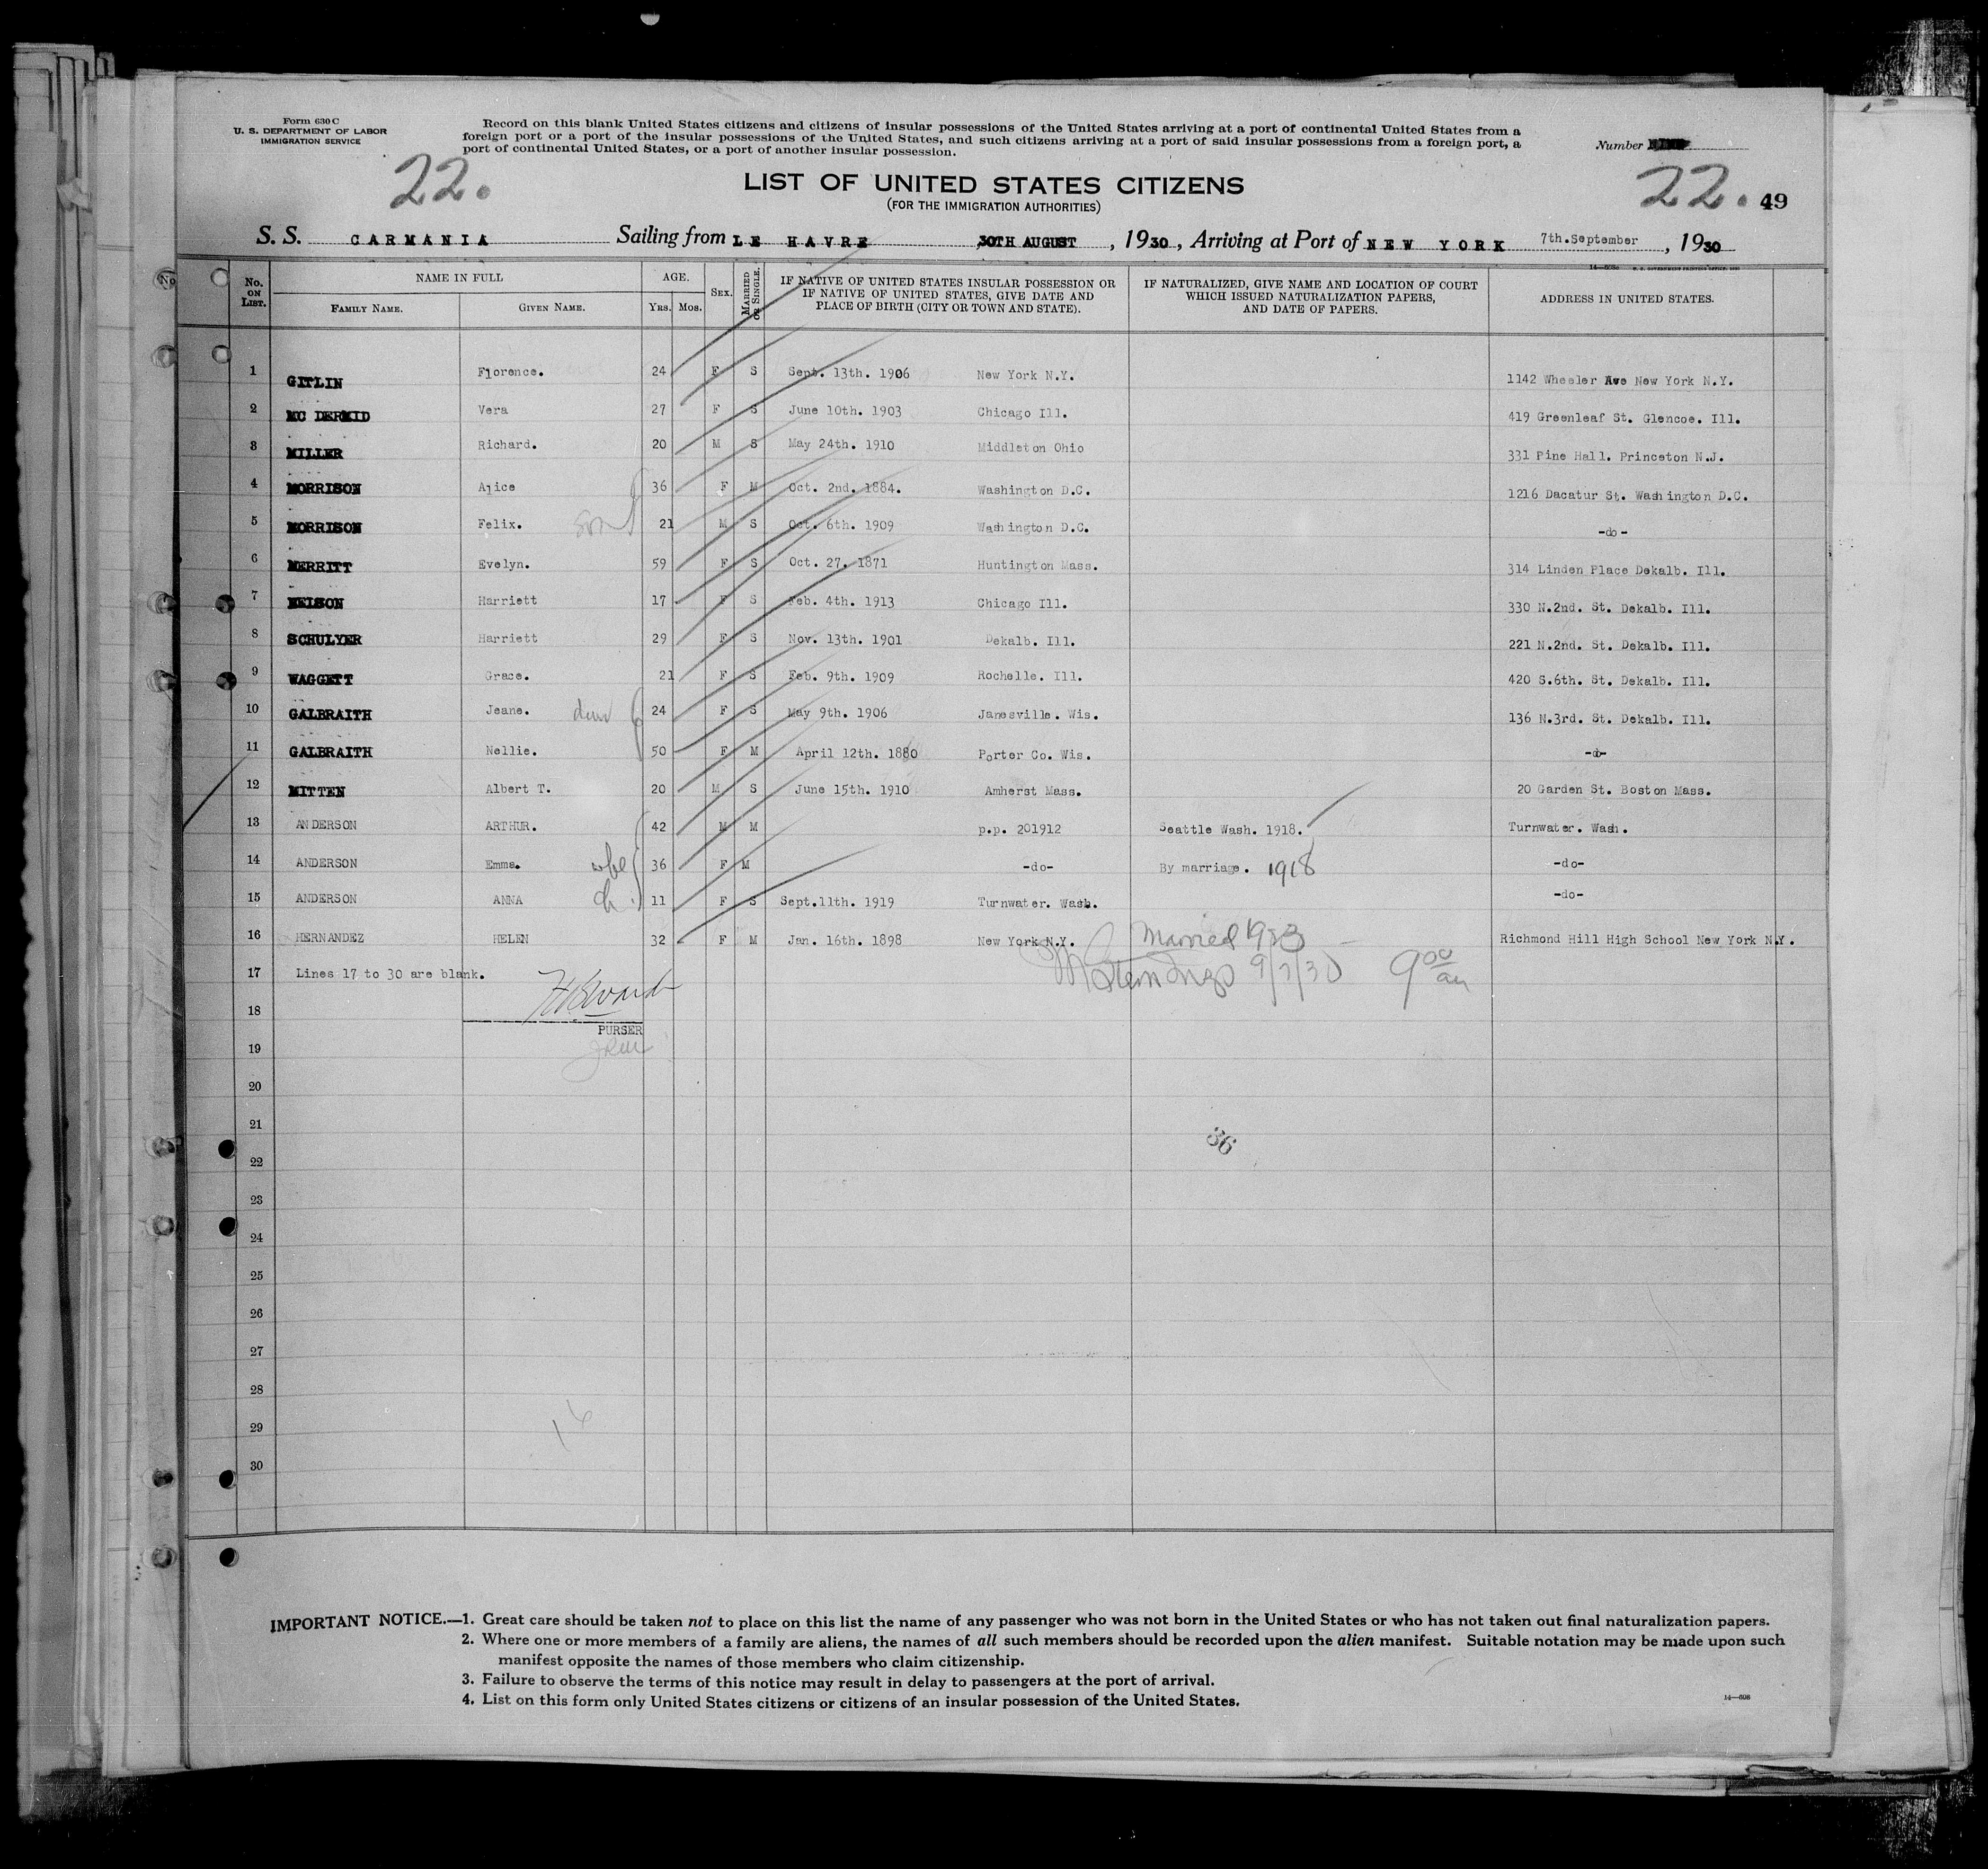 Form 630 C
U. S. DEPARTMENT OF LABOR
IMMIGRATION SERVICE
Record on this blank United States citizens and citizens of insular possessions of the United States arriving at a port of continental United States from a
foreign port or a port of the insular possessions of the United States, and such citizens arriving at a port of said insular possessions from a foreign port, a
port of continental United States, or a port of another insular possession.
Number
22. 22. 49
LIST OF UNITED STATES CITIZENS
(FOR THE IMMIGRATION AUTHORITIES)
S. S. CARMANIA Sailing from LE HAVRE 30TH AUGUST, 1930, Arriving at Port of NEW YORK 7th.September, 1930
No. ON LIST. NAME IN FULL FAMILY NAME. GIVEN NAME. AGE. YRS. MOS. SEX. MARRIED OR SINGLE. IF NATIVE OF UNITED STATES INSULAR POSSESSION OR IF NATIVE OF UNITED STATES, GIVE DATE AND PLACE OF BIRTH (CITY OR TOWN AND STATE). IF NATURALIZED, GIVE NAME AND LOCATION OF COURT WHICH ISSUED NATURALIZATION PAPERS, AND DATE OF PAPERS. ADDRESS IN UNITED STATES.
1 GITLIN Florence. 24 F S Sept. 13th. 1906 New York N.Y. 1142 Wheeler Ave New York N.Y.
2 MC DERMID Vera 27 F S June 10th. 1903 Chicago Ill. 419 Greenleaf St. Glencoe. Ill.
3 MILLER Richard. 20 M S May 24th. 1910 Middleton Ohio 331 Pine Hall. Princeton N.J.
4 MORRISON Alice 36 F M Oct. 2nd. 1884. Washington D.C. 1216 Dacatur St. Washington D.C.
5 MORRISON Felix. son 21 M S Oct. 6th. 1909 Washington D.C. -do-
6 MERRITT Evelyn. 59 F S Oct. 27. 1871 Huntington Mass. 314 Linden Place Dekalb. Ill.
7 NELSON Harriett 17 F S Feb. 4th. 1913 Chicago Ill. 330 N.2nd. St. Dekalb. Ill.
8 SCHULYER Harriett 29 F S Nov. 13th. 1901 Dekalb. Ill. 221 N.2nd. St. Dekalb. Ill.
9 WAGGETT Grace. 21 F S Feb. 9th. 1909 Rochelle. Ill. 420 S.6th. St. Dekalb. Ill.
10 GALBRAITH Jeane. 24 F S May 9th. 1906 Janesville. Wis. 136 N.3rd. St. Dekalb. Ill.
11 GALBRAITH Nellie. 50 F M April 12th. 1880 Porter Co. Wis. -do-
12 MITTEN Albert T. 20 M S June 15th. 1910 Amherst Mass. 20 Garden St. Boston Mass.
13 ANDERSON ARTHUR. 42 M M p.p. 201912 Seattle Wash. 1918. Turnwater. Wash.
14 ANDERSON Emma. wife 36 F M -do- By marriage. 1918 -do-
15 ANDERSON ANNA ch. 11 F S Sept.11th. 1919 Turnwater. Wash. -do-
16 HERNANDEZ HELEN 32 F M Jan. 16th. 1898 New York N.Y. Married 1923 Richmond Hill High School New York N.Y.
17 Lines 17 to 30 are blank. 9/7/30 9 00 am
18
PURSER
19
20
21
36
22
23
24
25
26
27
28
29 16
30
IMPORTANT NOTICE.—1. Great care should be taken not to place on this list the name of any passenger who was not born in the United States or who has not taken out final naturalization papers.
2. Where one or more members of a family are aliens, the names of all such members should be recorded upon the alien manifest. Suitable notation may be made upon such
manifest opposite the names of those members who claim citizenship.
3. Failure to observe the terms of this notice may result in delay to passengers at the port of arrival.
4. List on this form only United States citizens or citizens of an insular possession of the United States.
14—608